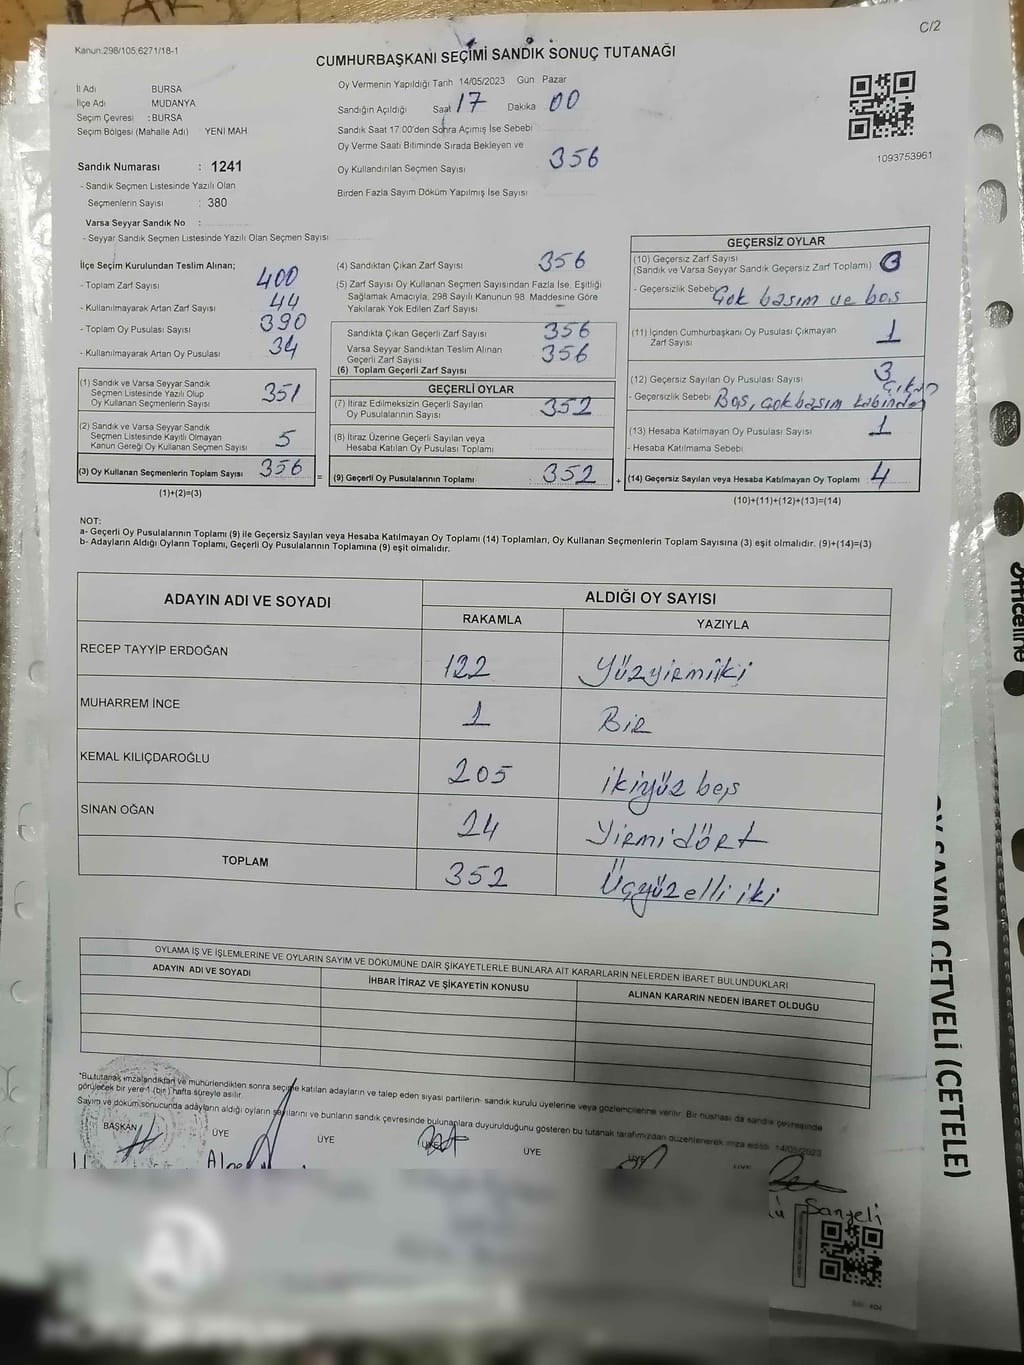 C/2
Kanun:298/105,6271/18-1
CUMHURBAŞKANI SEÇİMİ SANDIK SONUÇ TUTANAĞI
İl Adı BURSA
İlçe Adı MUDANYA
Seçim Çevresi : BURSA
Seçim Bölgesi (Mahalle Adı) YENİ MAH
Sandık Numarası : 1241
- Sandık Seçmen Listesinde Yazılı Olan
Seçmenlerin Sayısı : 380
Varsa Seyyar Sandık No :
- Seyyar Sandık Seçmen Listesinde Yazılı Olan Seçmen Sayısı
Oy Vermenin Yapıldığı Tarih 14/05/2023 Gün Pazar
Sandığın Açıldığı Saat 17 Dakika 00
Sandık Saat 17:00'den Sonra Açımış İse Sebebi
Oy Verme Saati Bitiminde Sırada Bekleyen ve
Oy Kullandırılan Seçmen Sayısı 356
Birden Fazla Sayım Döküm Yapılmış İse Sayısı
1093753961
İlçe Seçim Kurulundan Teslim Alınan;
- Toplam Zarf Sayısı 400
- Kullanılmayarak Artan Zarf Sayısı 44
- Toplam Oy Pusulası Sayısı 390
- Kullanılmayarak Artan Oy Pusulası 34
(1) Sandık ve Varsa Seyyar Sandık
Seçmen Listesinde Yazılı Olup
Oy Kullanan Seçmenlerin Sayısı 351
(2) Sandık ve Varsa Seyyar Sandık
Seçmen Listesinde Kayıtlı Olmayan
Kanun Gereği Oy Kullanan Seçmen Sayısı 5
(3) Oy Kullanan Seçmenlerin Toplam Sayısı 356 =
(1)+(2)=(3)
(4) Sandıktan Çıkan Zarf Sayısı 356
(5) Zarf Sayısı Oy Kullanan Seçmen Sayısından Fazla İse, Eşitliği
Sağlamak Amacıyla, 298 Sayılı Kanunun 98. Maddesine Göre
Yakılarak Yok Edilen Zarf Sayısı
Sandıkta Çıkan Geçerli Zarf Sayısı 356
Varsa Seyyar Sandıktan Teslim Alınan 356
Geçerli Zarf Sayısı
(6) Toplam Geçerli Zarf Sayısı
GEÇERLİ OYLAR
(7) İtiraz Edilmeksizin Geçerli Sayılan
Oy Pusulalarının Sayısı 352
(8) İtiraz Üzerine Geçerli Sayılan veya
Hesaba Katılan Oy Pusulaları Toplamı
(9) Geçerli Oy Pusulalarının Toplamı 352 +
GEÇERSİZ OYLAR
(10) Geçersiz Zarf Sayısı
(Sandık ve Varsa Seyyar Sandık Geçersiz Zarf Toplamı)
- Geçersizlik Sebebi Çok basım ve boş
(11) İçinden Cumhurbaşkanı Oy Pusulası Çıkmayan
Zarf Sayısı 1
(12) Geçersiz Sayılan Oy Pusulası Sayısı 3
- Geçersizlik Sebebi Boş, çok basım kabinden çıkan
(13) Hesaba Katılmayan Oy Pusulası Sayısı 1
- Hesaba Katılmama Sebebi
(14) Geçersiz Sayılan veya Hesaba Katılmayan Oy Toplamı 4
(10)+(11)+(12)+(13)=(14)
NOT:
a- Geçerli Oy Pusulalarının Toplamı (9) ile Geçersiz Sayılan veya Hesaba Katılmayan Oy Toplamı (14) Toplamları, Oy Kullanan Seçmenlerin Toplam Sayısına (3) eşit olmalıdır. (9)+(14)=(3)
b- Adayların Aldığı Oyların Toplamı, Geçerli Oy Pusulalarının Toplamına (9) eşit olmalıdır.
ADAYIN ADI VE SOYADI
ALDIĞI OY SAYISI
RAKAMLA YAZIYLA
RECEP TAYYİP ERDOĞAN 122 Yüzyirmiiki
MUHARREM İNCE 1 Bir
KEMAL KILIÇDAROĞLU 205 ikiyüz beş
SİNAN OĞAN 24 Yirmidört
TOPLAM 352 Üçyüzelli iki
OYLAMA İŞ VE İŞLEMLERİNE VE OYLARIN SAYIM VE DÖKÜMÜNE DAİR ŞİKAYETLERLE BUNLARA AİT KARARLARIN NELERDEN İBARET BULUNDUKLARI
ADAYIN ADI VE SOYADI İHBAR İTİRAZ VE ŞİKAYETİN KONUSU ALINAN KARARIN NEDEN İBARET OLDUĞU
*Bu tutanak imzalandıktan ve mühürlendikten sonra seçime katılan adayların ve talep eden siyasi partilerin sandık kurulu üyelerine veya gözlemcilerine verilir. Bir nüshası da sandık çevresinde
görülecek bir yere 1 (bir) hafta süreyle asılır.
Sayım ve döküm sonucunda adayların aldığı oyların sayılarını ve bunların sandık çevresinde bulunanlara duyurulduğunu gösteren bu tutanak tarafımızdan düzenlenerek imza edildi. 14/05/2023
BAŞKAN ÜYE ÜYE ÜYE ÜYE ÜYE ÜYE
Sanzeli
Officeline
OY SAYIM CETVELİ (ÇETELE)